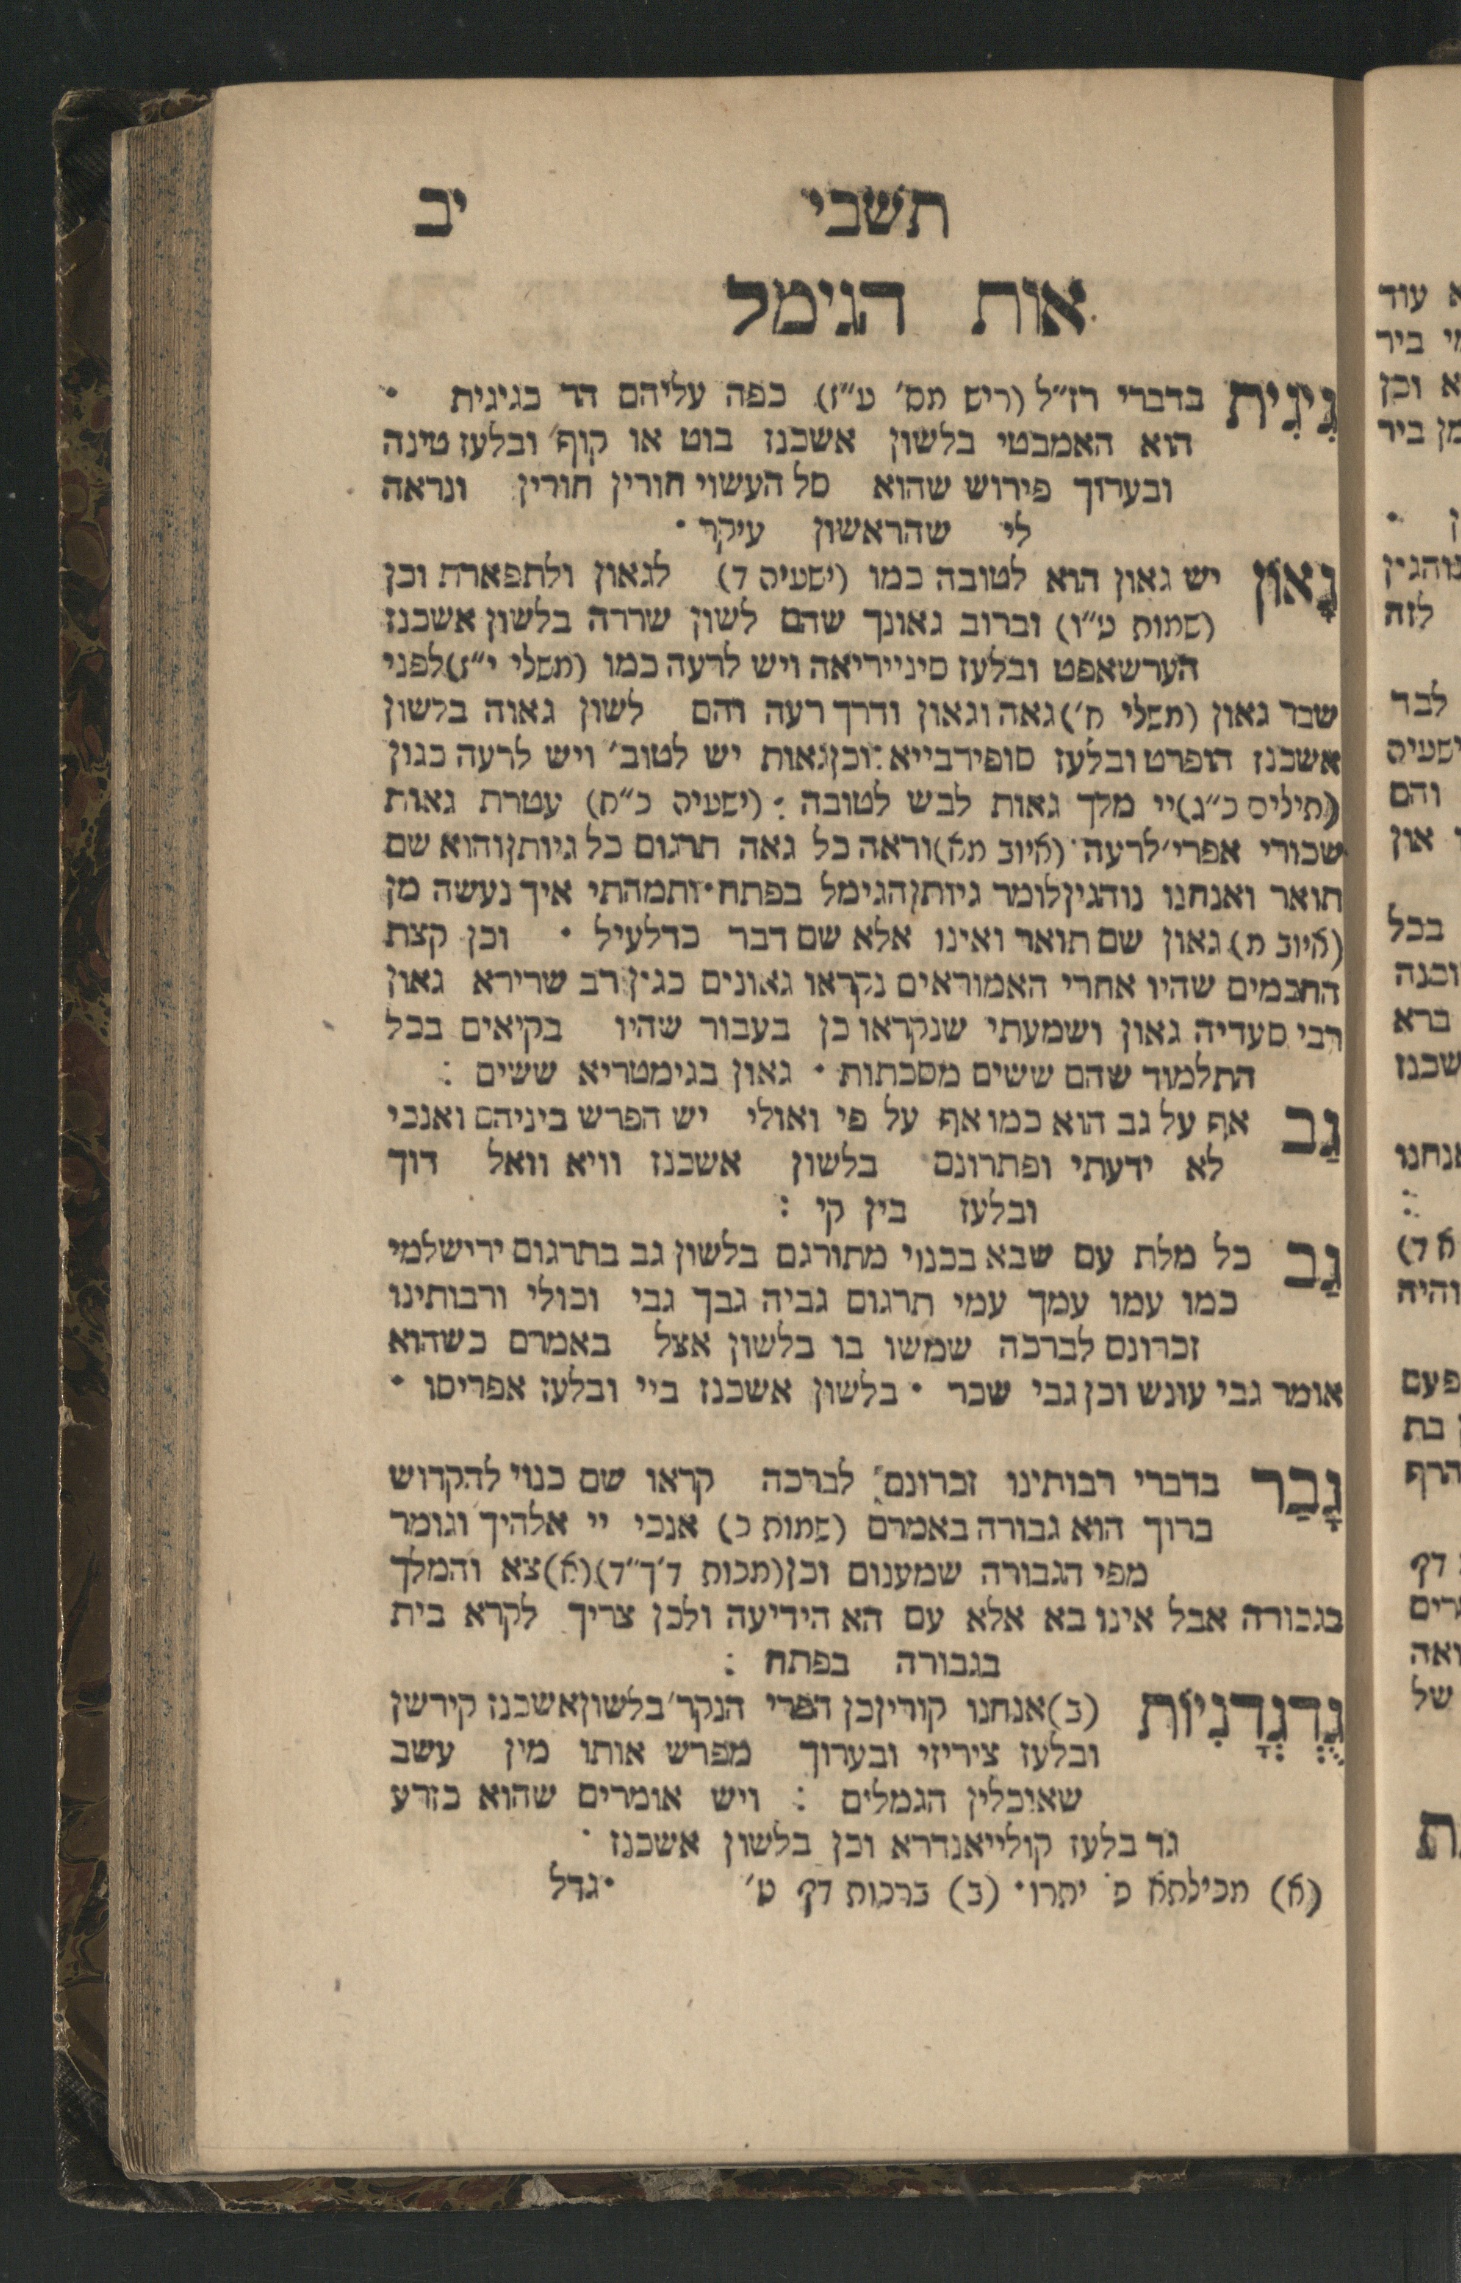 תשבי יב
אות הגימל
גִיגִית בדברי רז״ל (ריש מס׳ ע״ז) כפה עליהם הר כגיגית ·
הוא האמבטי בלשון אשכנז בוט או קוף ובלעז טינה
ובערוך פירוש שהוא סל העשוי חורין חורין ונראה
לי שהראשון עיקר ·
גָאוֹן יש גאון הוא לטובה כמו (ישעיה ד) לגאון ולתפארת וכן
(שמות ט״ו) וברוב גאונך שהם לשון שררה בלשון אשכנז
הערשאפט ובלעז סינייריאה ויש לרעה כמו (משלי י״ז)לפני
שבר גאון (משלי ח׳)גאה וגאון ודרך רעה והם לשון גאוה בלשון
אשכנז הופרט ובלעז סופירבייא : וכן גאות יש לטוב׳ ויש לרעה כגון
(תילים כ״ג)יי מלך גאות לבש לטובה : (ישעיה כ״ח) עטרת גאות
שכורי אפרי׳ לרעה · (איוב מא)וראה כל גאה תרגום כל גיותן והוא שם
תואר ואנחנו נוהגין לומר גיותן הגימל בפתח · ותמהתי איך נעשה מן
(איוב מ) גאון שם תואר ואינו אלא שם דבר כדלעיל · וכן קצת
החכמים שהיו אחרי האמוראים נקראו גאונים כגון רב שרירא גאון
רבי סעדיה גאון ושמעתי שנקראו כן בעבור שהיו בקיאים בכל
התלמוד שהם ששים מסכתות · גאון בגימטריא ששים :
גַב אף על גב הוא כמו אף על פי ואולי יש הפרש ביניהם ואנכי
לא ידעתי ופתרונם בלשון אשכנז וויא וואל דוך
ובלעז בין קי :
גַב כל מלת עם שבא בכנוי מתורגם בלשון גב בתרגום ירושלמי
כמו עמו עמך עמי תרגום גביה גבך גבי וכולי ורבותינו
זכרונם לברכה שמשו בו בלשון אצל באמרם כשהוא
אומר גבי עונש וכן גבי שכר · בלשון אשכנז ביי ובלעז אפריסו ·
גָבַר בדברי רבותינו זכרונם לברכה קראו שם כנוי להקדוש
ברוך הוא גבורה באמרם (שמות כ) אנכי יי אלהיך וגומר
מפי הגבורה שמענום וכן (מכות ד׳ך״ד)(א)צא והמלך
בגבורה אבל אינו בא אלא עם הא הידיעה ולכן צריך לקרא בית
בגבורה בפתח :
גֻדְגְדָנִיוֹת (ב)אנחנו קורין כן הפרי הנקר׳ בלשון אשכנז קירשן
ובלעז ציריזי ובערוך מפרש אותו מין עשב
שאוכלין הגמלים : ויש אומרים שהוא כזרע
גד בלעז קולייאנדרא וכן בלשון אשכנז ·
(א) מכילתא פ׳ יתרו · (ב) ברכות דף ט׳ · גדל